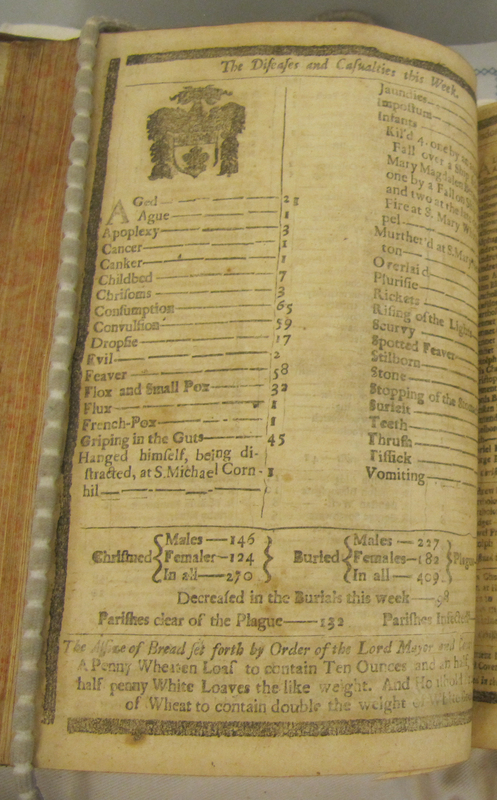 The Diſeaſes and Caſualties this Week.
AGed 21
Ague 1
Apoplexy 3
Cancer 1
Canker 1
Childbed 7
Chriſoms 3
Conſumption 65
Convulſion 59
Dropſie 17
Evil 2
Feaver 58
Flox and Small Pox 32
Flux 1
French-Pox 1
Griping in the Guts 45
Hanged himſelf, being di-
ſtracted, at S. Michael Corn- 1
hil
Jaundies
Impoſtum
Infants
Kil'd 4. one by
Fall over a Ship
Mary Magdalen
one by a Fall
and two at the
Fire at S. Mary
pel
Murther'd at S. Mary
ton
Overlaid
Pluriſie
Rickets
Riſing of the Lights
Scurvy
Spotted Feaver
Stilborn
Stone
Stopping of the
Surfeit
Teeth
Thruſh
Tiſſick
Vomiting
Chriſtned Males 146 Buried Males 227 Plague
Femaler 124 Females 182
In all 270 In all 409
Decreaſed in the Burials this week 98
Pariſhes clear of the Plague 132 Pariſhes Infected
The Aſſize of Bread ſet forth by Order of the Lord Mayor and
A Penny Wheaten Loaf to contain Ten Ounces and an half,
half penny White Loaves the like weight. And
of Wheat to contain double the weight of